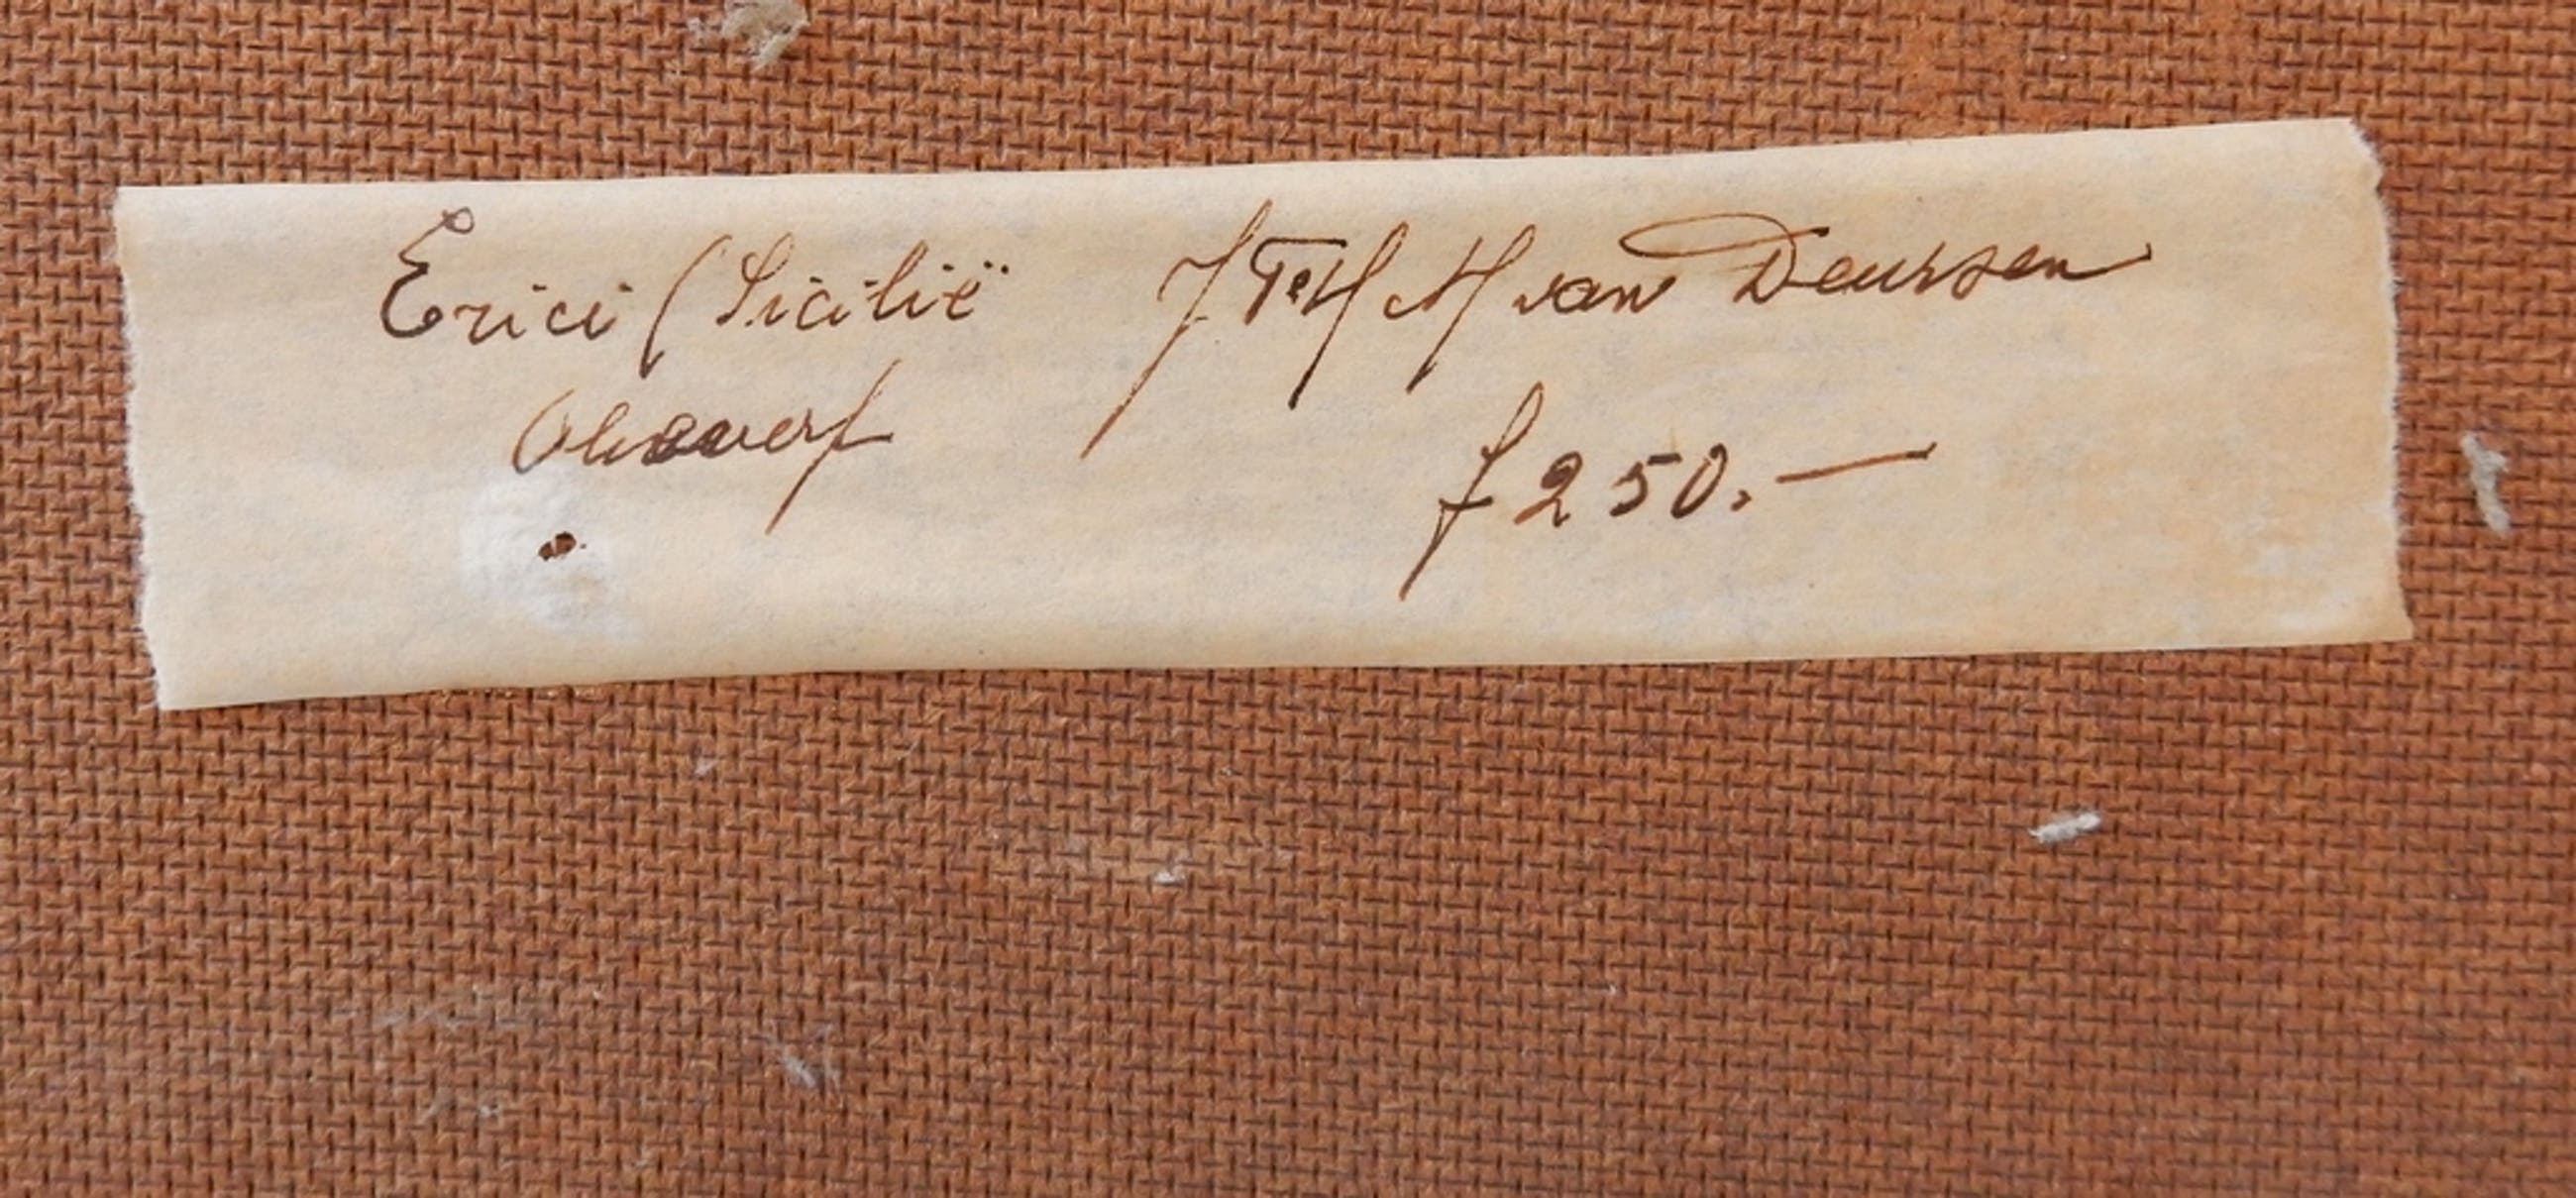 Erici (Sicilië J Th H M van Deursen
Olieverf
f 250.—